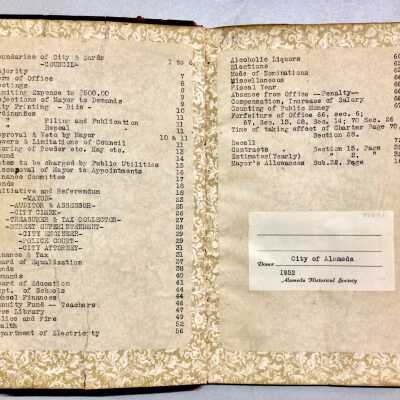 oundaries of City & Wards 1 to 6
-COUNCIL-
ajority 7
erm of Office 7
eetings 8
miting Expense to $500.00 8
ejections of Mayor to Demands 9
ity Printing - Bits - 10
rdinances 11
" Filing and Publication 11
" Repeal 11
pproval & Veto by Mayor 10 & 11
owers & Limitations of Council 11
oring of Powder etc, Hay etc.
ound
ates to be charged by Public Utilities 15
of Mayor to Appointments 16
nance Committee 16
onds 16
nitiative and Referendum 18
-MAYOR-
-AUDITOR & ASSESSOR-
-CITY CLERK-
-TREASURER & TAX COLLECTOR- 27
-STREET SUPERINTENDENT- 28
-CITY ENGINEER- 29
-POLICE COURT- 29
-CITY ATTORNEY- 31
inance & Tax
oard of Equalization
unds
emands
oard of Education 41
ept. of Schools 42
chool Finances 44
nnuity Fund -- Teachers 46
ree Library 47
olice and Fire 49
ealth 52
epartment of Electricity 56
Alcoholic Liquors
Elections
Mode of Nominations
Miscellaneous
Fiscal Year
Absence from Office --Penalty--
Compensation, Increase of Salary
Counting of Public Money
Forfeiture of Office 66, sec. 6;
67, Sec. 13, 68, Sec. 14; 70 Sec. 26
Time of taking effect of Charter Page 70,
Section 28.
Recall
Contracts " Section 15, Page
Estimates(Yearly) " 2, "
Mayor's Allowances Sub.22, Page
Donor City of Alameda
1952
Alameda Historical Society